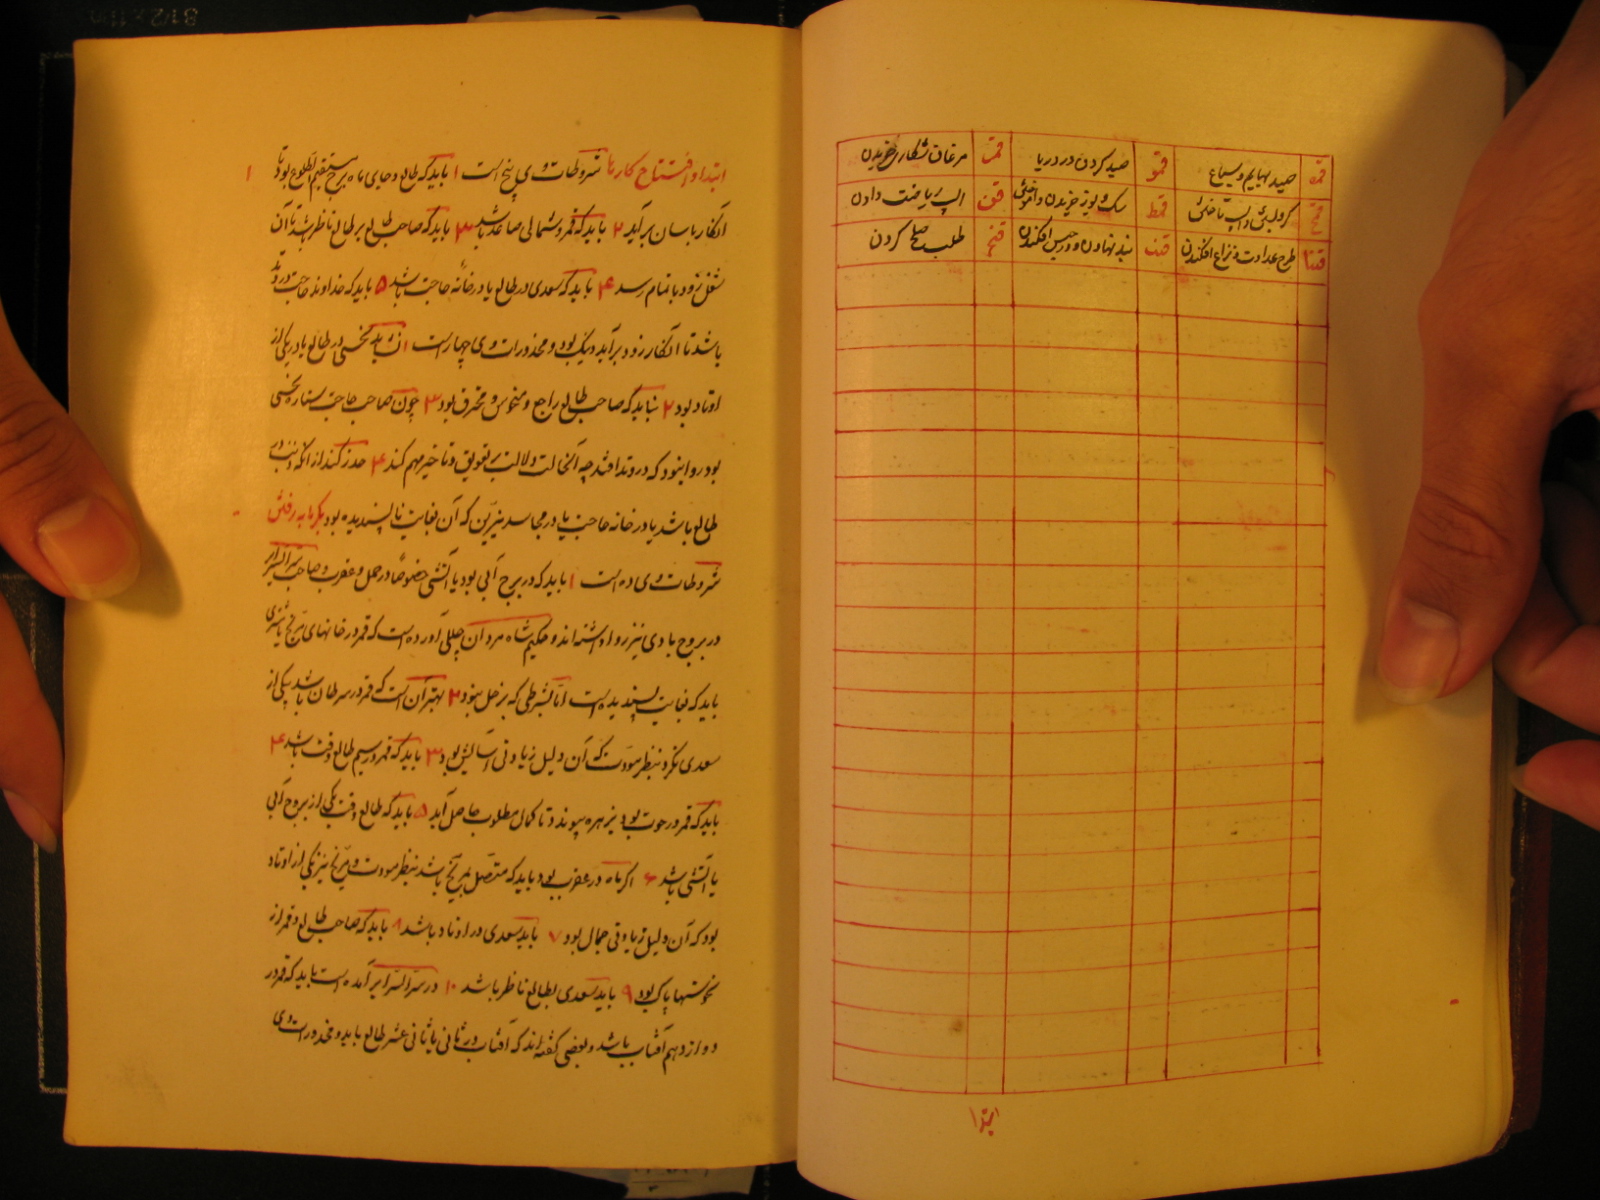 قمه صید بهایم و سباع قمو صید کردن در دریا قمز مرغان شکاری خریدن
قمح کوی و اسپ تاختن قمط سک و یوز خریدن و آموختن قن اسپ ریاضت دادن
قنا طرح عداوت و نزاع افکندن قنب بند نهادن و در حبس افکندن قنج طلب صلح کردن
ابتدا
ابتدا و افتتاح کارها شروطات وی پنج است ۱ باید که طالع و جای ماه برج مستقیم الطلوع بود تا ۱
آن کار باسان برآید ۲ باید که قمر در شمالی صاعد باشد ۳ باید که صاحب طالع بر طالع ناظر باشد تا آن
شغل زود باتمام رسد ۴ باید که سعدی در طالع یا در خانه حاجت باشد ۵ باید که خداوند حاجت در وتد
باشد تا آن کار زود برآید و نیک بود و محذورات وی چهار است ۱ نشاید نحسی در طالع یا در یکی از
اوتاد بود ۲ نباید که صاحب طالع راجع و منحوس و محترق بود ۳ چون صاحب حاجت ستاره نحسی
بود روا نبود که در وتد افتد چه آنحالت دلالت بر تعویق و تاخیر مهم کند ۴ حذر کند از آنکه ذنب در
طالع باشد یا در خانه حاجت یا در مجاسد نیرین که آن بغایت ناپسندیده بود بگرمابه رفتن
شروطات وی ده است ۱ باید که در برج آبی بود یا آتشی خصوصا در حمل و عقرب و صاحب سر السرایر
در بروج بادی نیز روا داشته اند و حکیم شاه مردان چنین آورده است که قمر در خانهای مریخ یا مشتری
باید که بغایت پسندیده است اما بشرطی که بزحل نبود ۲ بهتر آن است که قمر در سرطان باشد یکی از
سعدی نکرد بنظر مودت که آن دلیل زیادتی آسایش بود ۳ باید که قمر در سیم طالع وقت باشد ۴
باید که قمر در حوت بود بزهره پیوندد تا کمال مطلوب حاصل آید ۵ باید که طالع وقت یکی از بروج آبی
یا آتشی باشد ۶ اگر ماه در عقرب بود باید که متصل بمریخ باشد بنظر مودت و مریخ نیز یکی از اوتاد
بود که آن دلیل زیادتی جمال بود ۷ باید سعدی در اوتاد باشد ۸ باید که صاحب طالع و قمر از
نحوستها پاک بود ۹ باید سعدی بطالع ناظر باشد ۱۰ در سر السرایر آمده است باید که قمر در
دوازدهم آفتاب باشد و بعضی گفته اند که آفتاب در ثانی یا ثانی عشر طالع باید و محذورات وی